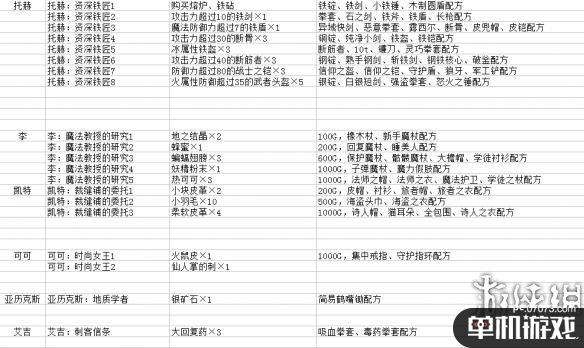 托赫 托赫：资深铁匠1 购买熔炉、铁砧 铁锭、铁剑、小铁锤、木制圆盾配方
托赫：资深铁匠2 攻击力超过10的铁剑×1 拳套、石之剑、铁斧、铁盾、长枪配方
托赫：资深铁匠3 魔法防御力超过7的铁盾×1 异域快剑、恶意拳套、露西尔、断骨、皮兜帽、皮铠配方
托赫：资深铁匠4 攻击力超过30的断骨×3 铜锭、纯净小剑、铁盔、铁铠配方
托赫：资深铁匠5 冰属性铁盔×3 断筋者、10t、镰刀、灵巧拳套配方
托赫：资深铁匠6 攻击力超过40的断筋者×3 钢锭、熟手钢剑、斩铁剑、钢铁核心、破釜配方
托赫：资深铁匠7 防御力超过80的战士之铠×3 信仰之盔、信仰之铠、守护盾、狼牙、军工铲配方
托赫：资深铁匠8 火属性防御超过35的武者头盔×5 银锭、白银短剑、强盗拳套、怒火之锤配方
李 李：魔法教授的研究1 地之结晶×2 100G，橡木杖、新手魔杖配方
李：魔法教授的研究2 蜂蜜×1 200G，回复魔杖、睡美人配方
李：魔法教授的研究3 蝙蝠翅膀×3 600G，保护魔杖、骷髅魔杖、大檐帽、学徒衬衫配方
李：魔法教授的研究4 妖精粉末×1 1000G，子弹魔杖、魔力假肢配方
李：魔法教授的研究5 热可可×3 1000G，法师之帽、法师之衣、魔法护卫、学徒之杖配方
凯特 凯特：裁缝铺的委托1 小块皮革×2 200G，皮帽、衬衫、旅者帽、旅者之衣配方
凯特：裁缝铺的委托2 小羽毛×10 500G，海盗头巾、海盗之衣配方
凯特：裁缝铺的委托3 柔软皮革×4 1000G，诗人帽、猫耳朵、全包围、诗人之衣配方
可可 可可：时尚女王1 火鼠皮×1 1000G，集中戒指、守护指环配方
可可：时尚女王2 仙人掌的刺×1
亚历克斯 亚历克斯：地质学者 银矿石×1 简易鹤嘴锄配方
艾吉 艾吉：刺客信条 大回复药×3 吸血拳套、毒药拳套配方
单机游戏